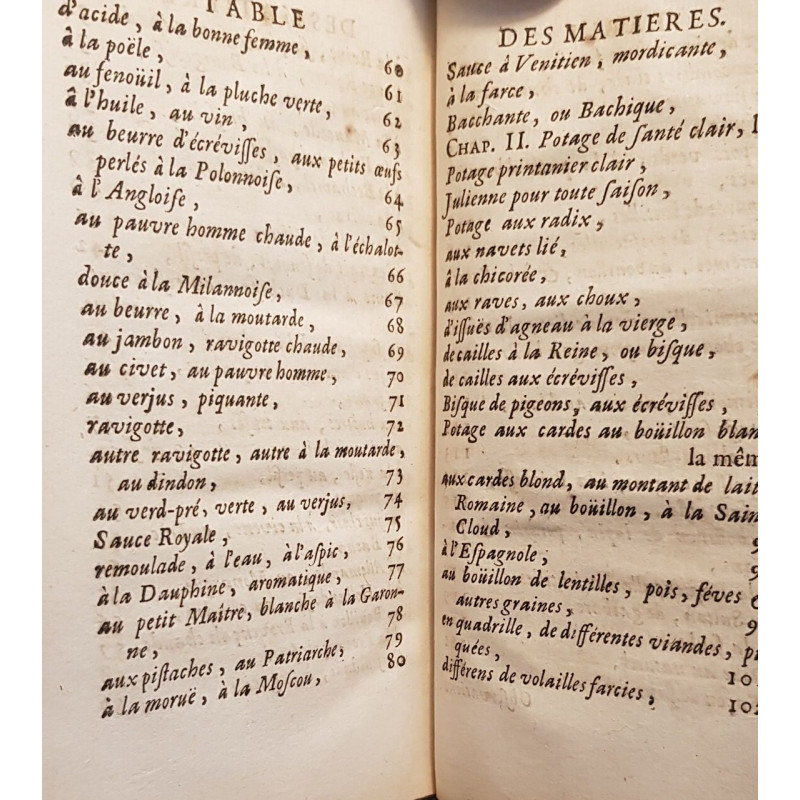 TABLE
d'acide, à la bonne femme, 60
à la poële, 61
au fenoüil, à la pluche verte, 62
à l'huile, au vin, 63
au beurre d'écrévisses, aux petits œufs
perlés à la Polonnoise, 64
à l'Angloise, 65
au pauvre homme chaude, à l'échalot-
te, 66
douce à la Milannoise, 67
au beurre, à la moutarde, 68
au jambon, ravigotte chaude, 69
au civet, au pauvre homme, 70
au verjus, piquante, 71
ravigotte, 72
autre ravigotte, autre à la moutarde,
au dindon, 73
au verd-pré, verte, au verjus, 74
Sauce Royale, 75
remoulade, à l'eau, à l'aspic, 76
à la Dauphine, aromatique, 77
au petit Maître, blanche à la Garon-
ne, 78
aux pistaches, au Patriarche, 79
à la moruë, à la Moscou, 80
DES MATIERES.
Sauce à Venitien, mordicante,
à la farce,
Bacchante, ou Bachique,
CHAP. II. Potage de santé clair,
Potage printanier clair,
Julienne pour toute saison,
Potage aux radix,
aux navets lié,
à la chicorée,
aux raves, aux choux,
d'issuës d'agneau à la vierge,
de cailles à la Reine, ou bisque,
de cailles aux écrévisses,
Bisque de pigeons, aux écrévisses,
Potage aux cardes au boüillon blan
la mêm
aux cardes blond, au montant de lait
Romaine, au boüillon, à la Sain
Cloud, 9
à l'Espagnole, 9
au boüillon de lentilles, pois, féves
autres graines, 9
en quadrille, de différentes viandes, pi
quées, 10
différens de volailles farcies, 102